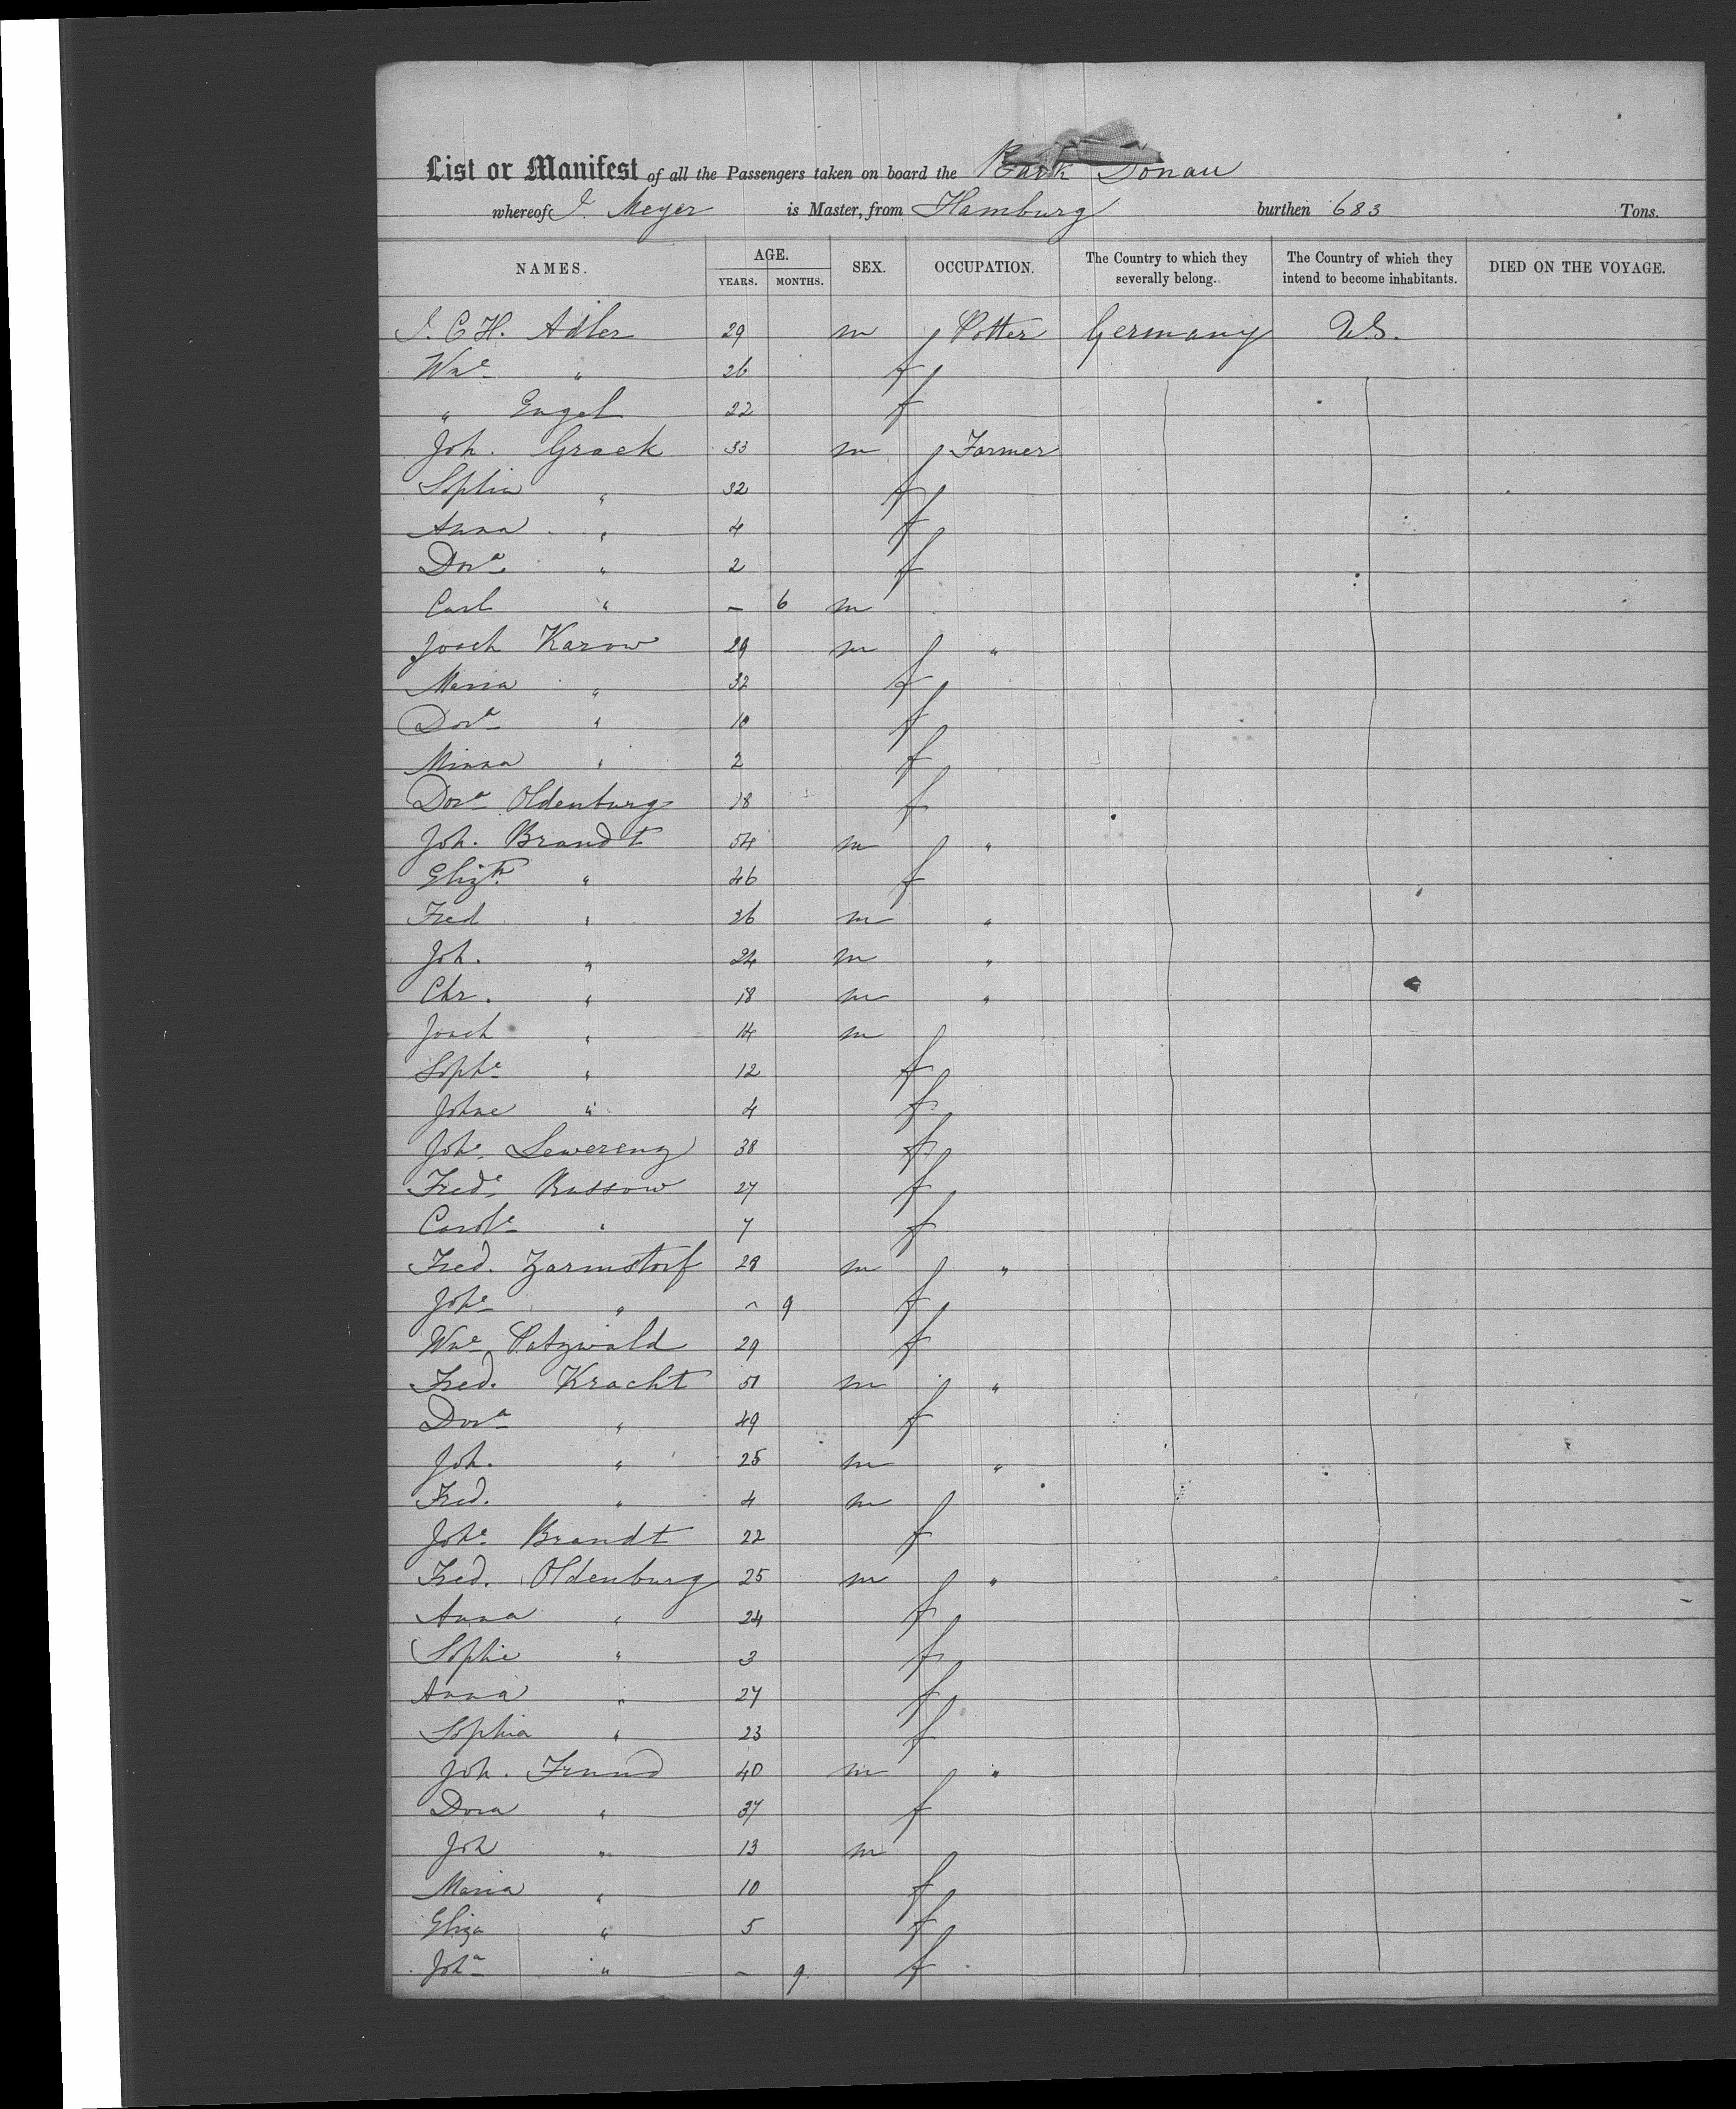 List or Manifest of all the Passengers taken on board the Bark Donau
whereof J. Meyer is Master, from Hamburg burthen 683 Tons.
NAMES. AGE. YEARS. MONTHS. SEX. OCCUPATION. The Country to which they severally belong. The Country of which they intend to become inhabitants. DIED ON THE VOYAGE.
J. C. H. Adler 29 m Potter Germany U.S.
Wne " 26 f
" Engel 22 f
Joh. Graek 33 m Farmer
Sophia " 32 f
Anna " 4 f
Dora " 2 f
Carl " – 6 m
Joach Karow 29 m "
Maria " 32 f
Dora " 10 f
Minna " 2 f
Dora Oldenburg 18 f
Joh. Brandt 54 m "
Elizth " 46 f
Fred " 26 m "
Joh. " 24 m "
Chr. " 18 m "
Joach " 14 m
Sophe " 12 f
Johne " 4 f
Johe Lewerenz 38 f
Frede Bassow 27 f
Carole " 7 f
Fred. Zarmstorf 28 m "
Johe " – 9 f
Wne Patzwald 29 f
Fred. Kracht 51 m "
Dora " 49 f
Joh. " 25 m "
Fred. " 4 m
Johe Brandt 22 f
Fred. Oldenburg 25 m "
Anna " 24 f
Sophie " 3 f
Anna " 27 f
Sophia " 23 f
Joh. 40 m "
Dora " 37 f
Joh " 13 m
Maria " 10 f
Eliza " 5 f
Joha " – 9 f